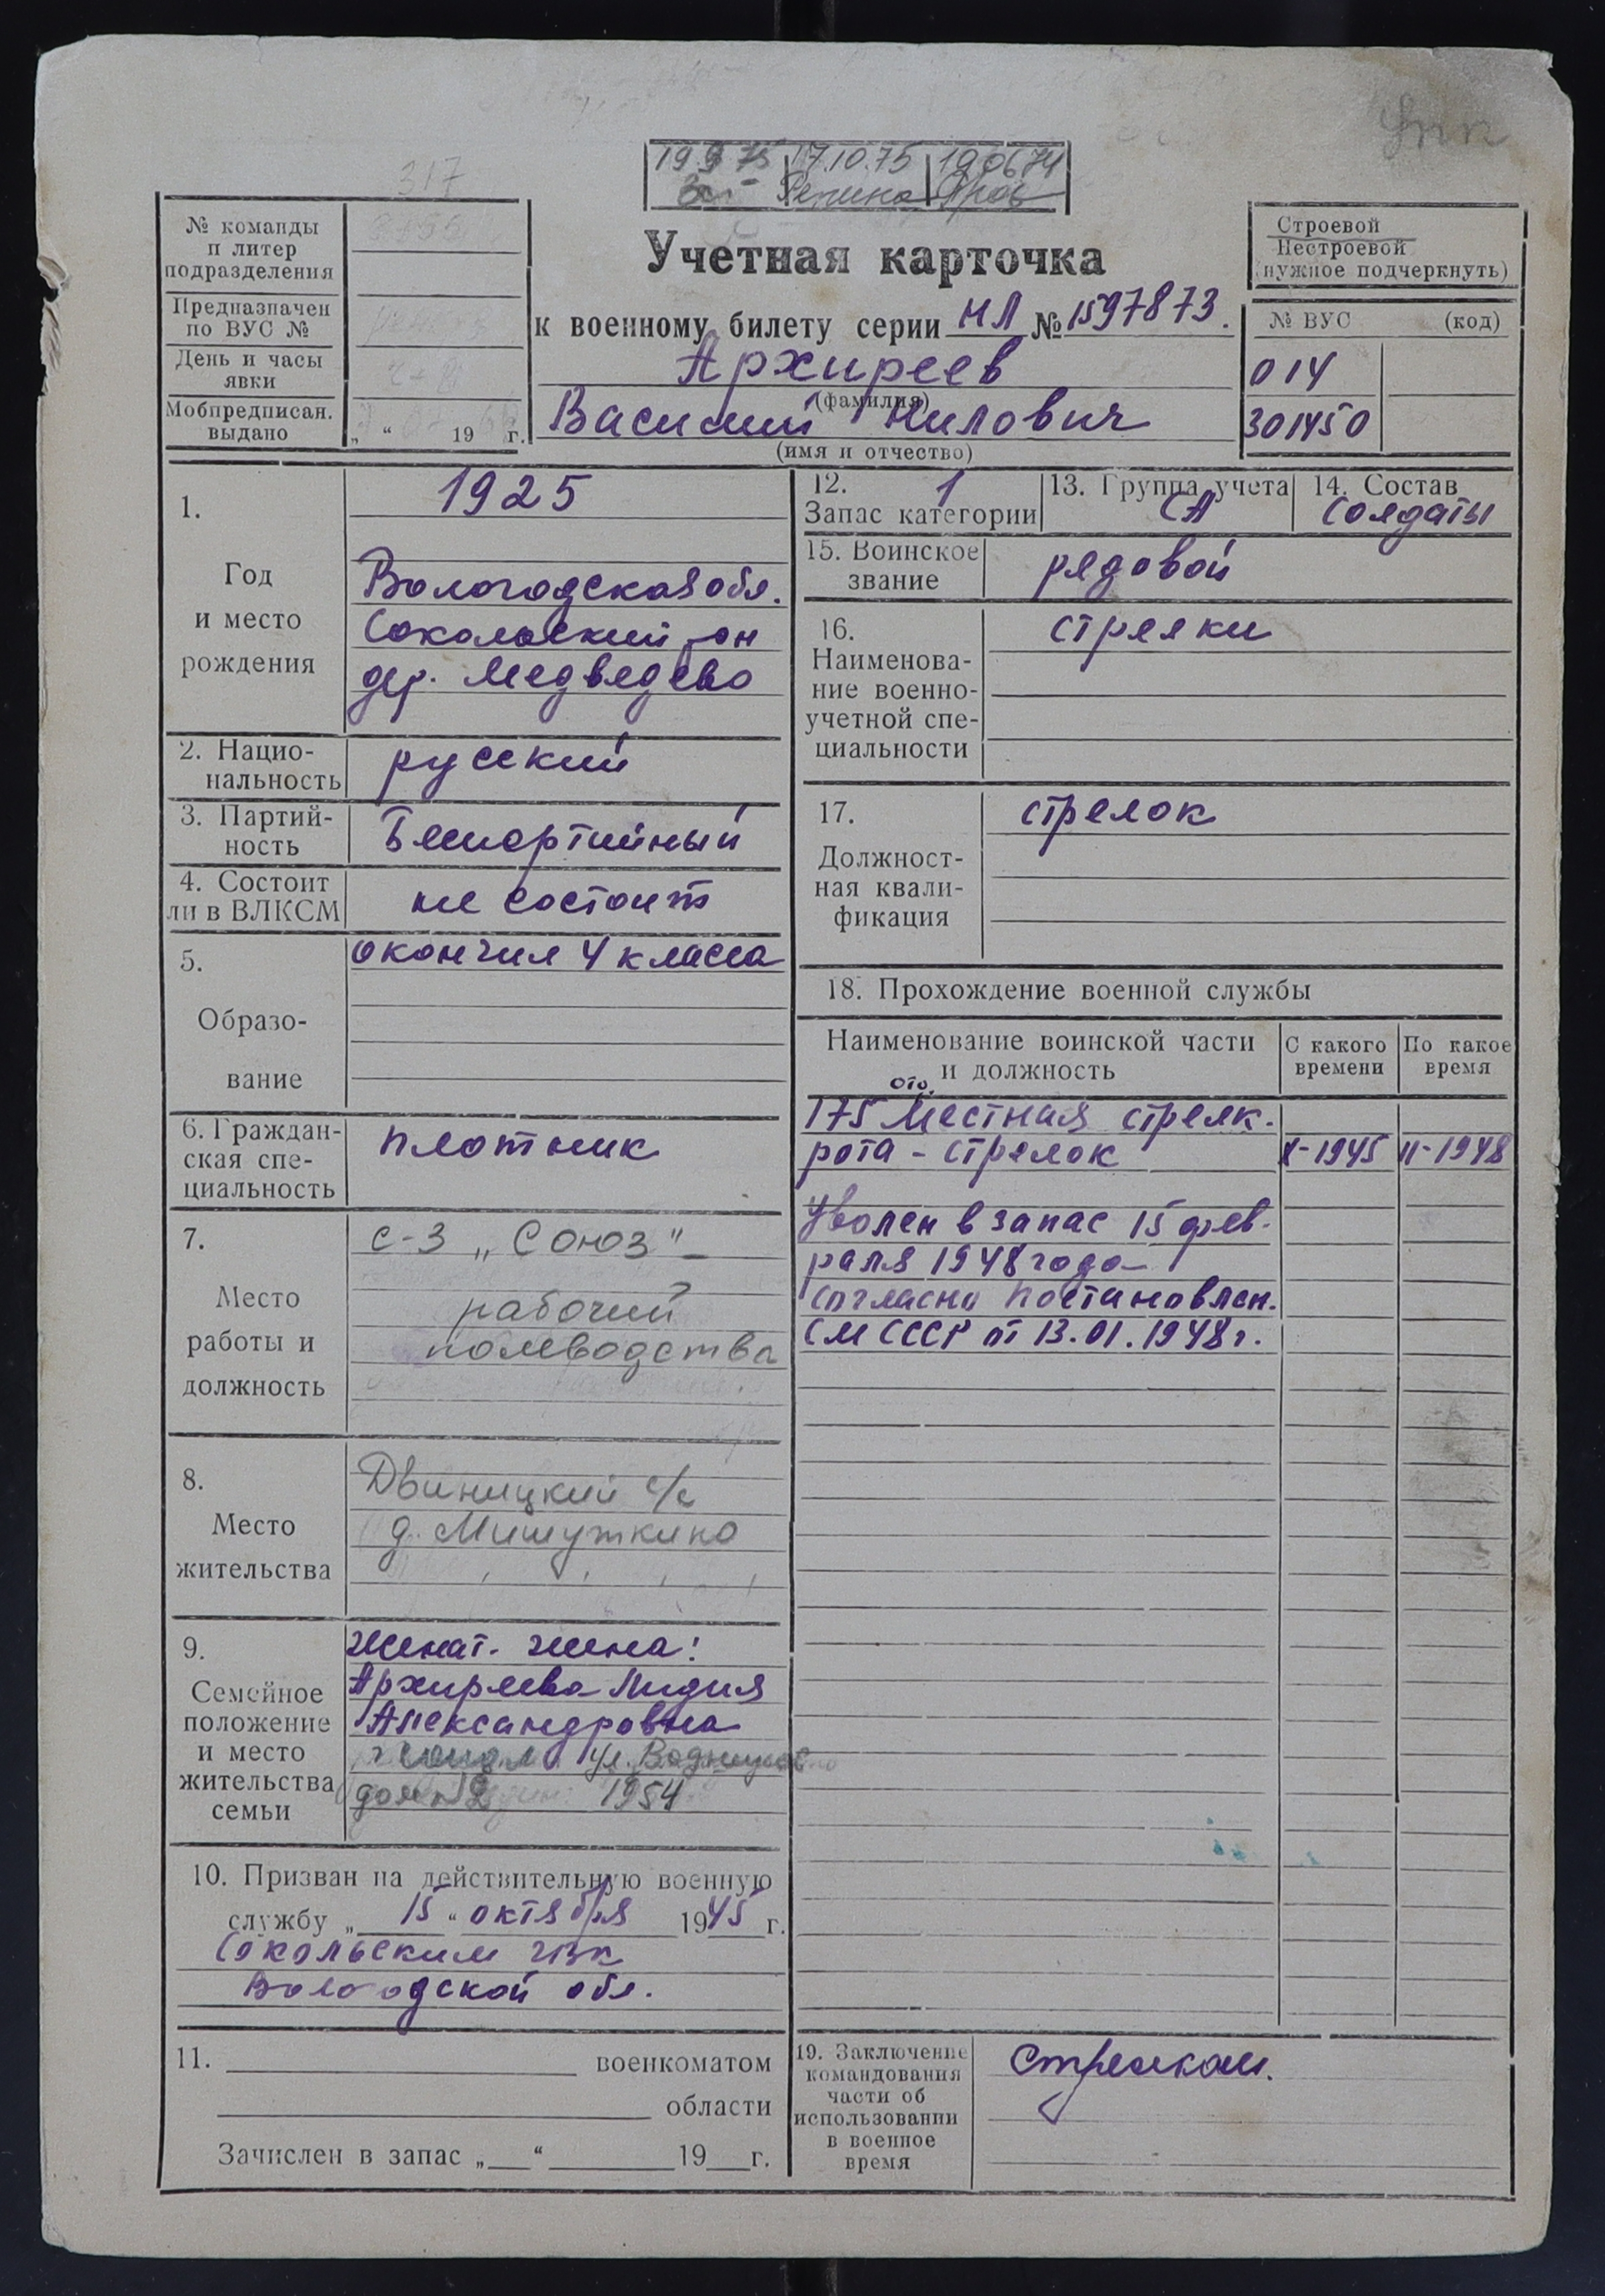 317
19.9.75 17.10.75 190674
Репина
№ команды
и литер
подразделения
Предназначен
по ВУС №
День и часы
явки
Мобпредписан.
выдано
„ “ 19 г.
Учетная карточка
к военному билету серии НЛ № 1597873.
Архиреев
(фамилия)
Василий Нилович
(имя и отчество)
Строевой
Нестроевой
(нужное подчеркнуть)
№ ВУС (код)
014
301450
1.
Год
и место
рождения
1925
Вологодская обл.
Сокольский р-он
дер. Медведево
2. Нацио-
нальность
русский
3. Партий-
ность
Беспартийный
4. Состоит
ли в ВЛКСМ
не состоит
5.
Образо-
вание
окончил 4 класса
6. Граждан-
ская спе-
циальность
плотник
7.
Место
работы и
должность
с-з „Союз"
рабочий
полеводства
8.
Место
жительства
Двиницкий с/с
д. Мишуткино
9.
Семейное
положение
и место
жительства
семьи
Женат. жена:
Архиреева Лидия
Александровна
ул. Водников
дом 12 1954
10. Призван на действительную военную
службу „ 15 “ октября 1945 г.
Сокольским РВК
Вологодской обл.
11. военкоматом
области
Зачислен в запас „ “ 19 г.
12. 1
Запас категории
13. Группа учета
СА
14. Состав
Солдаты
15. Воинское
звание
рядовой
16.
Наименова-
ние военно-
учетной спе-
циальности
стрелки
17.
Должност-
ная квали-
фикация
стрелок
18. Прохождение военной службы
Наименование воинской части
и должность
С какого
времени
По какое
время
отд.
175 Местная стрелк.
рота - стрелок X-1945 II-1948
Уволен в запас 15 фев-
раля 1948 года
согласно постановлен.
СМ СССР от 13.01.1948 г.
19. Заключение
командования
части об
использовании
в военное
время
Стрелком.